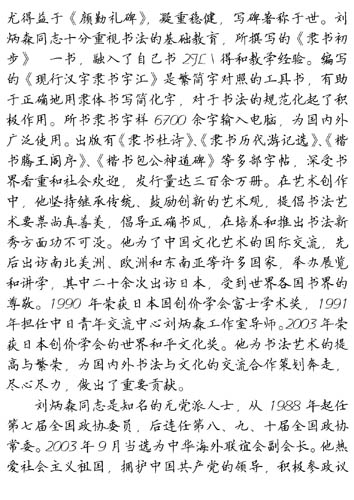 尤得益于《颜勤礼碑》，凝重稳健，写碑著称于世。刘
炳森同志十分重视书法的基础教育，所撰写的《隶书初
步》  一书，融入了自己书 29L\ 得和教学经验。编写
的《现行汉字隶书字汇》是繁简字对照的工具书，有助
于正确地用隶体书写简化字，对于书法的规范化起了积
极作用。所书隶书字样 6700 余字输入电脑，为国内外
广泛使用。出版有《隶书杜诗》、《隶书历代游记选》、《楷
书滕王阁序》、《楷书包公神道碑》等多部字帖，深受书
界看重和社会欢迎，发行量达三百余万册。在艺术创作
中，他坚持继承传统、鼓励创新的艺术观，提倡书法艺
术要崇尚真善美，倡导正确书风，在培养和推出书法新
秀方面功不可没。他为了中国文化艺术的国际交流，先
后出访南北美洲、欧洲和东南亚等许多国家，举办展览
和讲学，其中二十余次出访日本，受到世界各国书界的
尊敬。1990 年荣获日本国创价学会富士学术奖，1991
年担任中日青年交流中心刘炳森工作室导师。2003 年荣
获日本创价学会的世界和平文化奖。他为书法艺术的提
高与繁荣，为国内外书法与文化的交流合作策划奔走，
尽心尽力，做出了重要贡献。
刘炳森同志是知名的无党派人士，从 1988 年起任
第七届全国政协委员，后连任第八、九、十届全国政协
常委。2003 年 9 月当选为中华海外联谊会副会长。他热
爱社会主义祖国，拥护中国共产党的领导，积极参政议